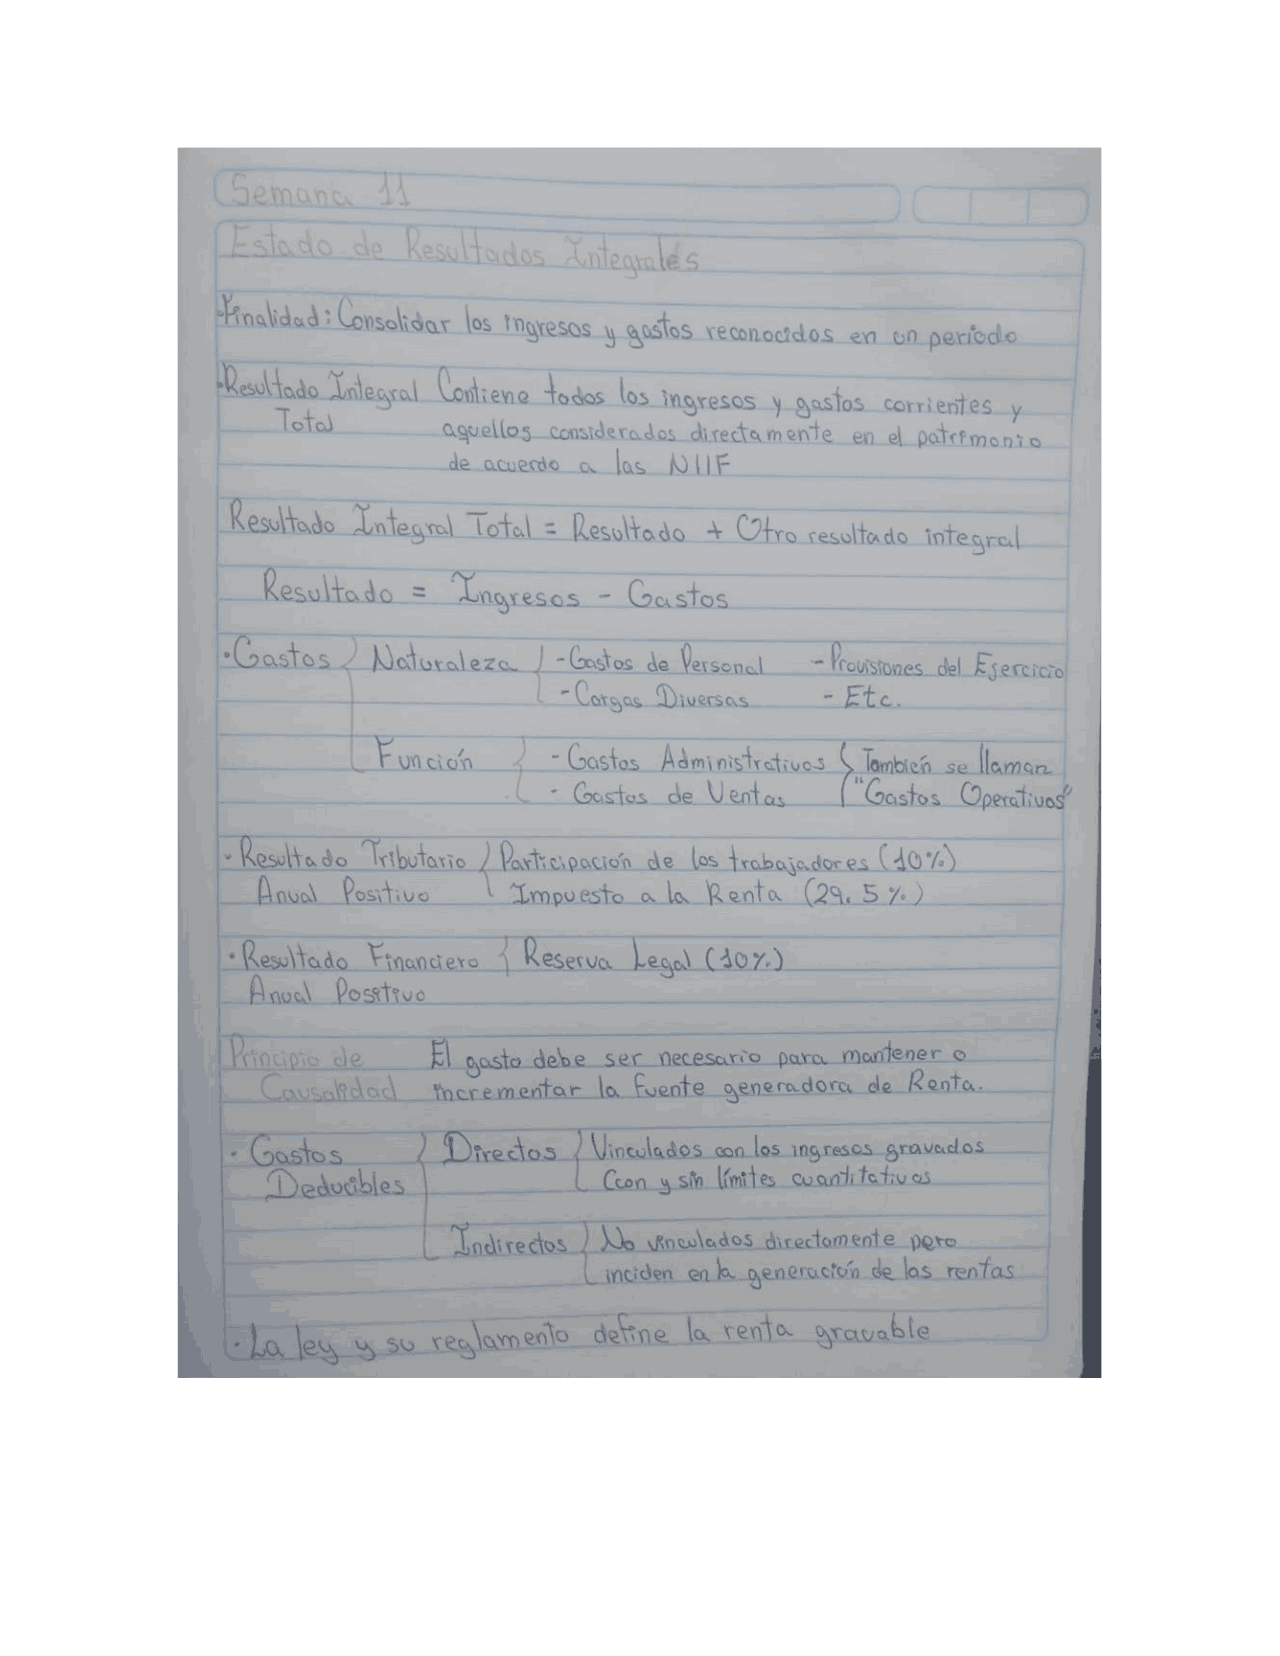 Semana 11
Estado de Resultados Integrales
• Finalidad: Consolidar los ingresos y gastos reconocidos en un periodo
• Resultado Integral Contiene todos los ingresos y gastos corrientes y
Total aquellos considerados directamente en el patrimonio
de acuerdo a las NIIF
Resultado Integral Total = Resultado + Otro resultado integral
Resultado = Ingresos - Gastos
• Gastos { Naturaleza { - Gastos de Personal - Provisiones del Ejercicio
- Cargas Diversas - Etc.
Función { - Gastos Administrativos { También se llaman
- Gastos de Ventas "Gastos Operativos"
• Resultado Tributario { Participación de los trabajadores (10%)
Anual Positivo Impuesto a la Renta (29.5%)
• Resultado Financiero { Reserva Legal (10%)
Anual Positivo
Principio de El gasto debe ser necesario para mantener o
Causalidad incrementar la fuente generadora de Renta.
• Gastos { Directos { Vinculados con los ingresos gravados
Deducibles Ccon y sin límites cuantitativos
Indirectos { No vinculados directamente pero
inciden en la generación de las rentas
• La ley y su reglamento define la renta gravable